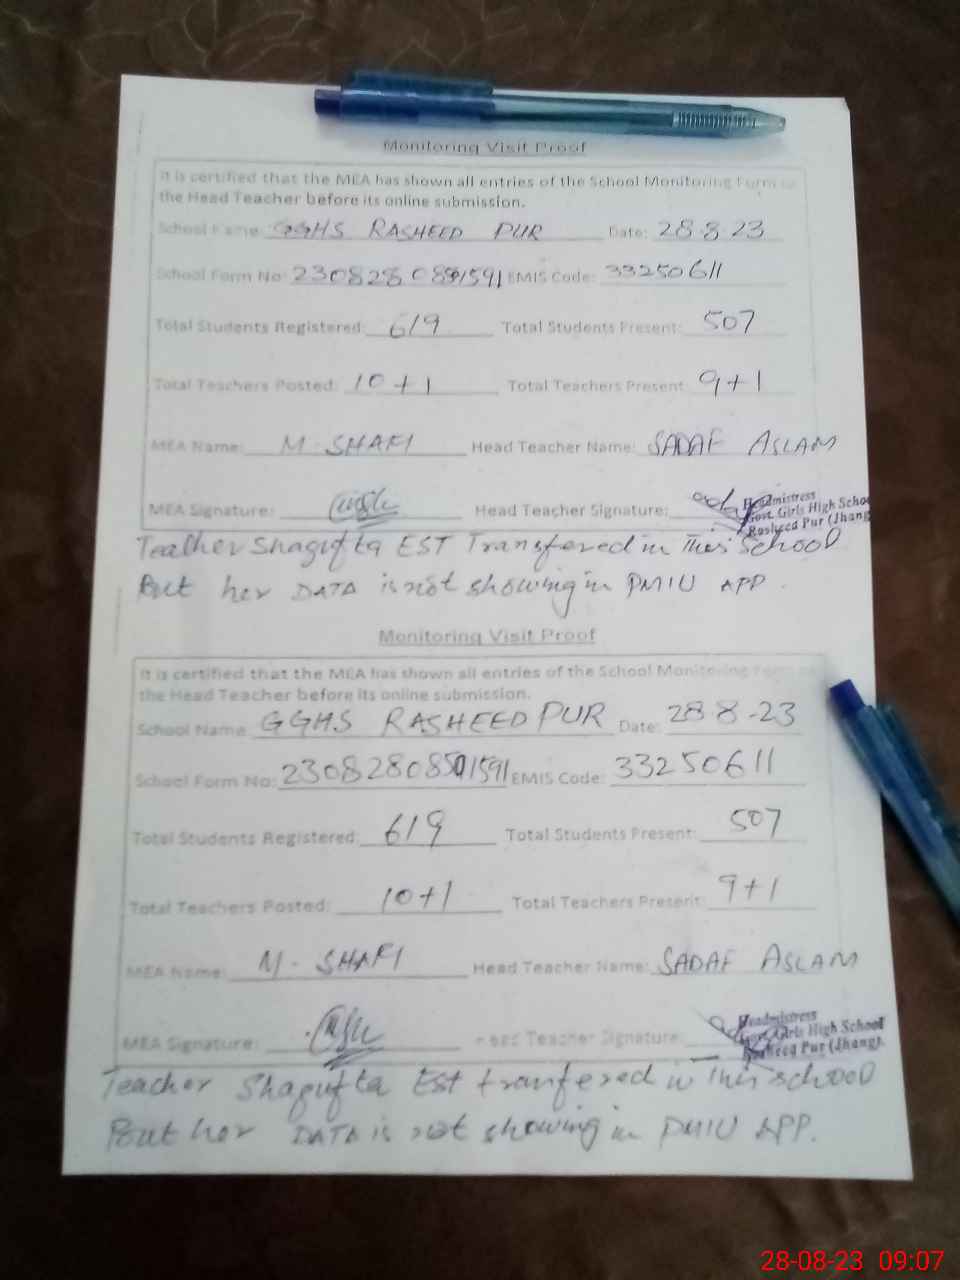 Monitoring Visit Proof
It is certified that the MEA has shown all entries of the School Monitoring Form to
the Head Teacher before its online submission.
School Name: GGHS RASHEED PUR Date: 28-8-23
School Form No: EMIS Code: 33250611
Total Students Registered: 619 Total Students Present: 507
Total Teachers Posted: 10+1 Total Teachers Present: 9+1
MEA Name: M. SHAFI Head Teacher Name: SADAF ASLAM
MEA Signature: Head Teacher Signature:
Headmistress
Govt. Girls High School
Rasheed Pur (Jhang)
Teacher Shagufta EST Transfered in This School
But her DATA is not showing in PMIU APP.
Monitoring Visit Proof
It is certified that the MEA has shown all entries of the School Monitoring Form to
the Head Teacher before its online submission.
School Name GGHS RASHEED PUR Date: 28-8-23
School Form No: EMIS Code: 33250611
Total Students Registered: 619 Total Students Present: 507
Total Teachers Posted: 10+1 Total Teachers Present: 9+1
MEA Name: M. SHAFI Head Teacher Name: SADAF ASLAM
MEA Signature: Head Teacher Signature:
Headmistress
Govt. Girls High School
Rasheed Pur (Jhang).
Teacher Shagufta EST tranfered in This school
But her DATA is not showing in PMIU APP.
28-08-23 09:07